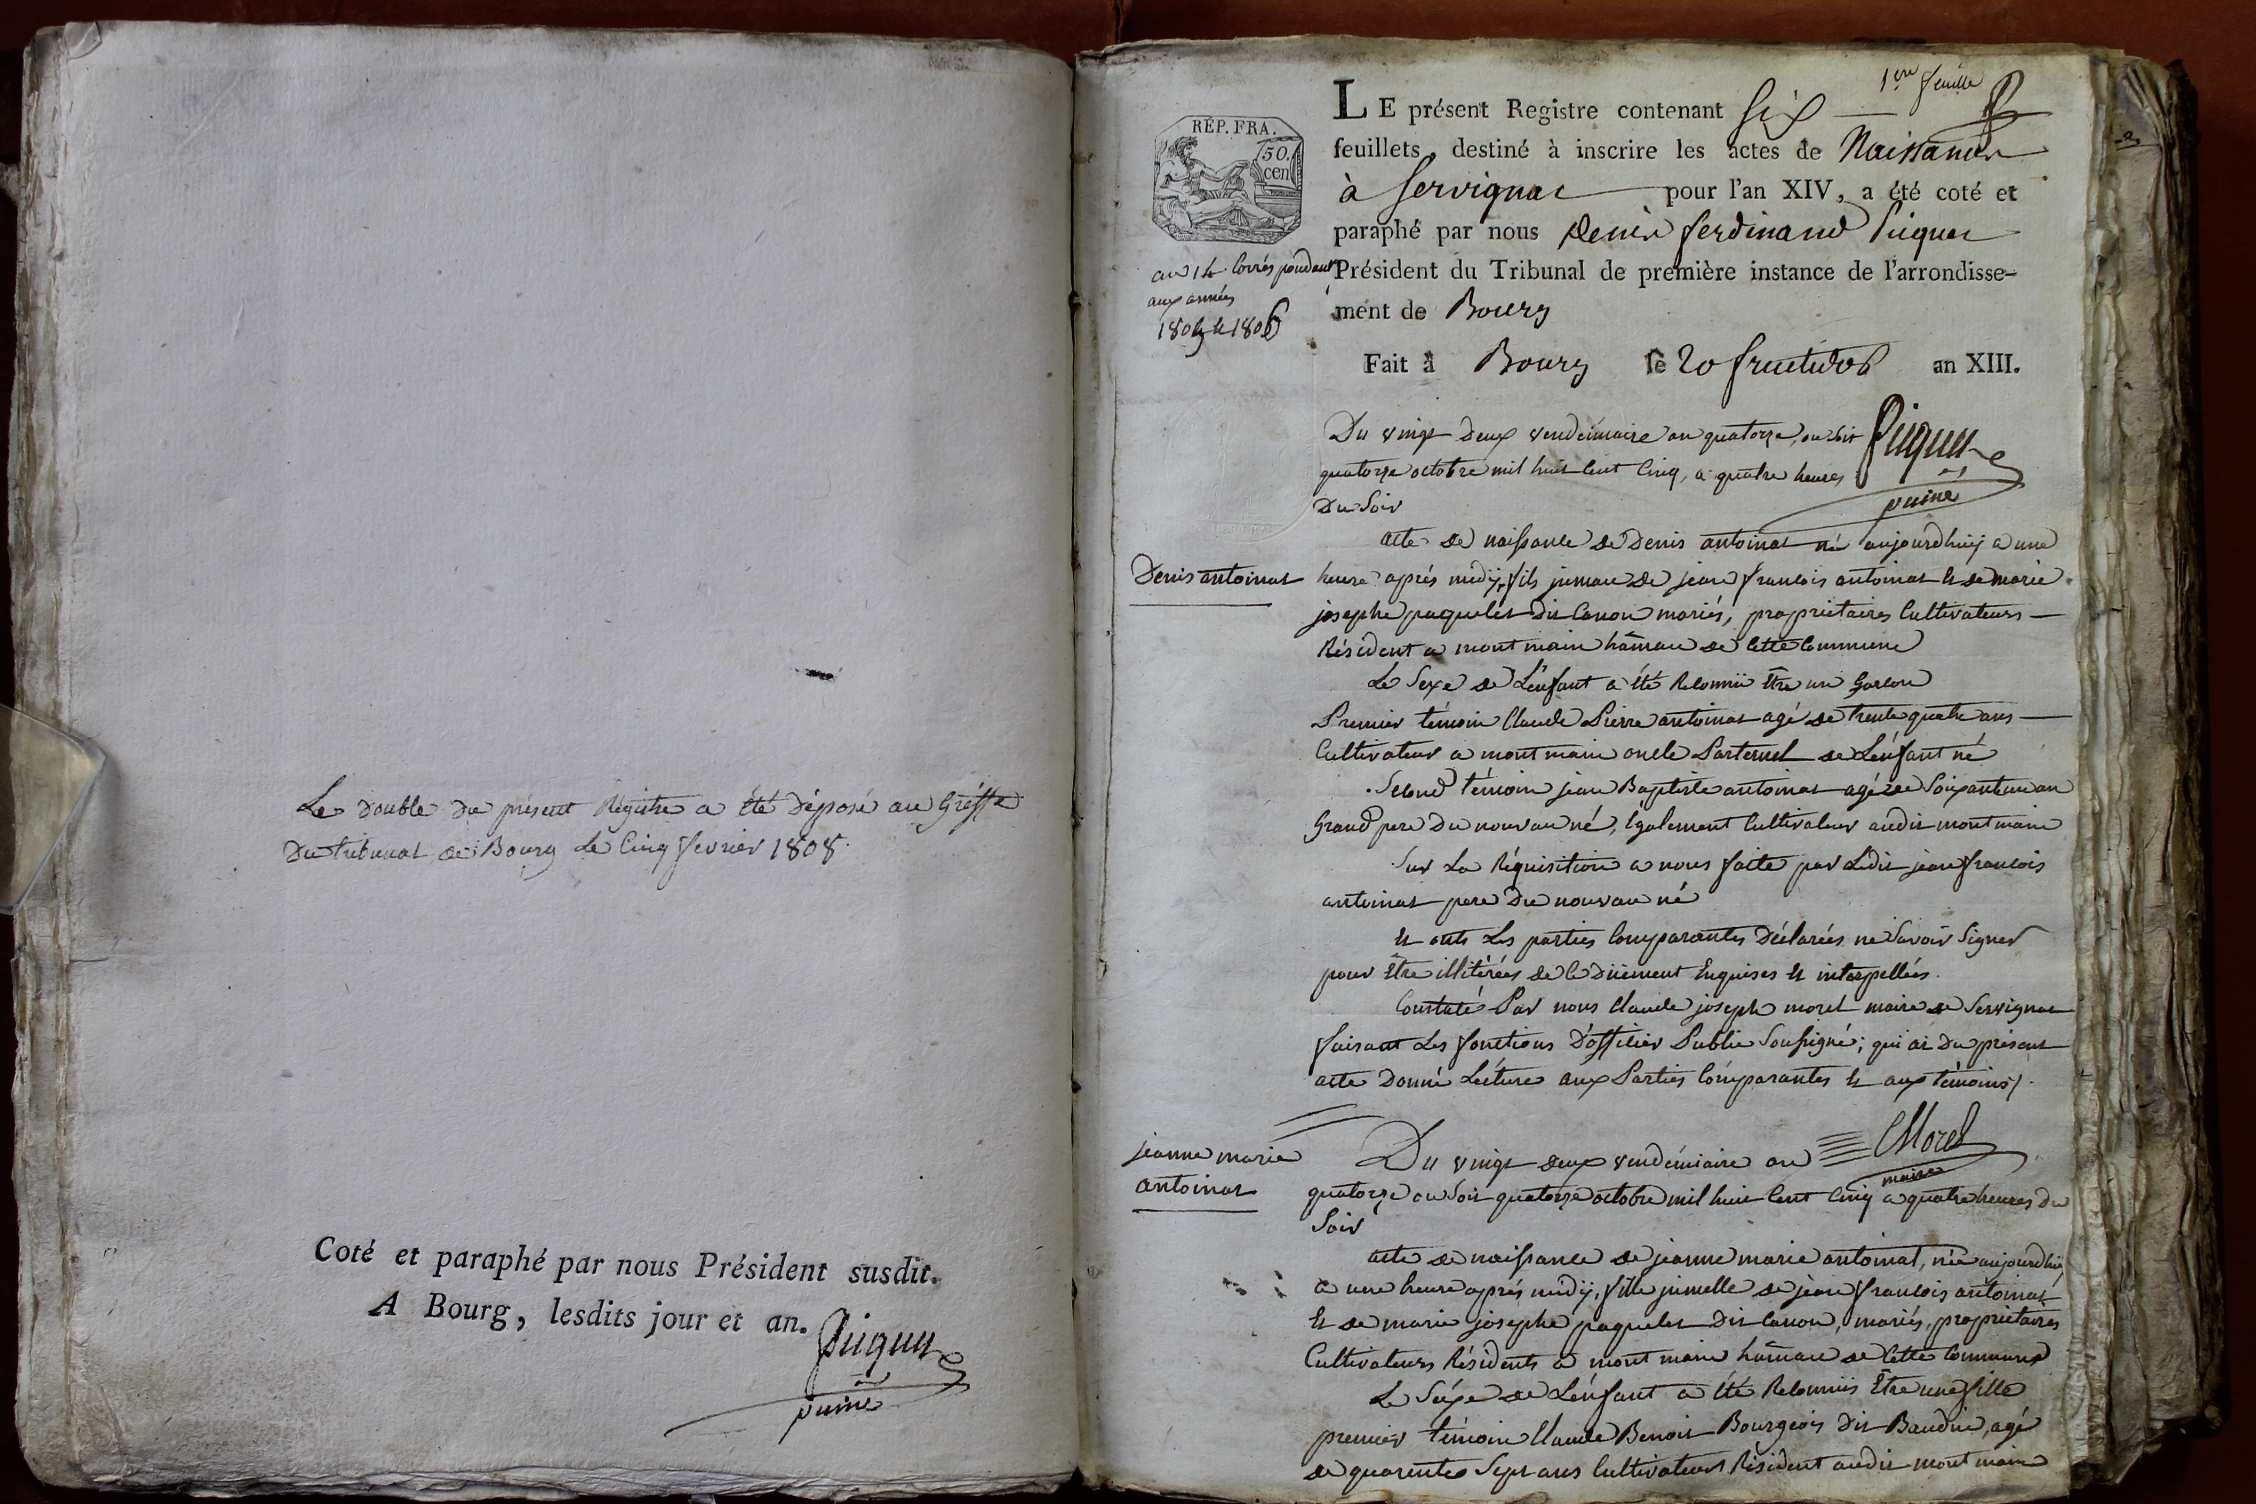 Le double du présent Registre a été déposé au Greffe
Du tribunal de Bourg Le Cinq fevrier 1808.
Coté et paraphé par nous Président susdit.
A Bourg, lesdits jour et an.
puiné
1ere feuille
LE présent Registre contenant six
feuillets, destiné à inscrire les actes de Naissances
à Servignat pour l'an XIV, a été coté et
paraphé par nous Denis ferdinand
Président du Tribunal de première instance de l'arrondisse-
ment de Bourg
Fait à Bourg le 20 fructidor an XIII.
RÉP. FRA.
50.
cen
an 14 Corréspondant
aux années
1805 et 1806
puiné
Du vingt Deux vendémiaire an quatorze, ou soit
quatorze octobre mil huit Cent Cinq, a quatre heures
Du Soir
Denis antoinat
acte de naissance de Denis antoinat né aujourdhuij a une
heure aprés midij, fils jumau de jean francois antoinat et de marie
josephe paquelet dit Canon mariés, proprietaires Cultivateurs
Résident a montmain hâmau de Cette Commune
Le Sexe de L'énfant a été Réconnû être un Garcon
Premier témoin Claude Pierre antoinat agé de trente quatre ans
Cultivateur a montmain oncle Parternel de L'énfant né
Second témoin jean Baptiste antoinat agé de Soixante un an
Grand pere Du nouvau né, Également Cultivateur audit montmain
Sur La Réquisition a nous faite par Ledit jean francois
antoinat pere Du nouvau né
Et onts Les parties Comparantes Déclarées ne Savoir Signer
pour être illitérées de Ce Dûement Enquises et interpellées.
Constaté Par nous Claude joseph morel maire de Servignat
faisant Les fonctions D'officier Public Soussigné; qui ai Du présent
acte Donné Lécture aux Parties Comparantes et aux témoins/.
CMorel
maire
jeanne marie
antoinat
Du vingt deux vendémiaire an
quatorze ou Soit quatorze octobre mil huit Cent Cinq a quatre heures du
Soir
acte de naissance de jeanne marie antoinat, née aujourdhuij
a une heure aprés midij, fille jumelle de jean francois antoinat
et de marie josephe paquelet dit Canon, mariés, proprietaires
Cultivateurs Résidents a montmain hâmau de Cette Commune
Le Séxe de L'énfant a été Reconnûs Être une fille
premier témoin Claude Benoit Bourgeois Dit Baudin, agé
de quarente Sept ans Cultivateur Résident audit montmain